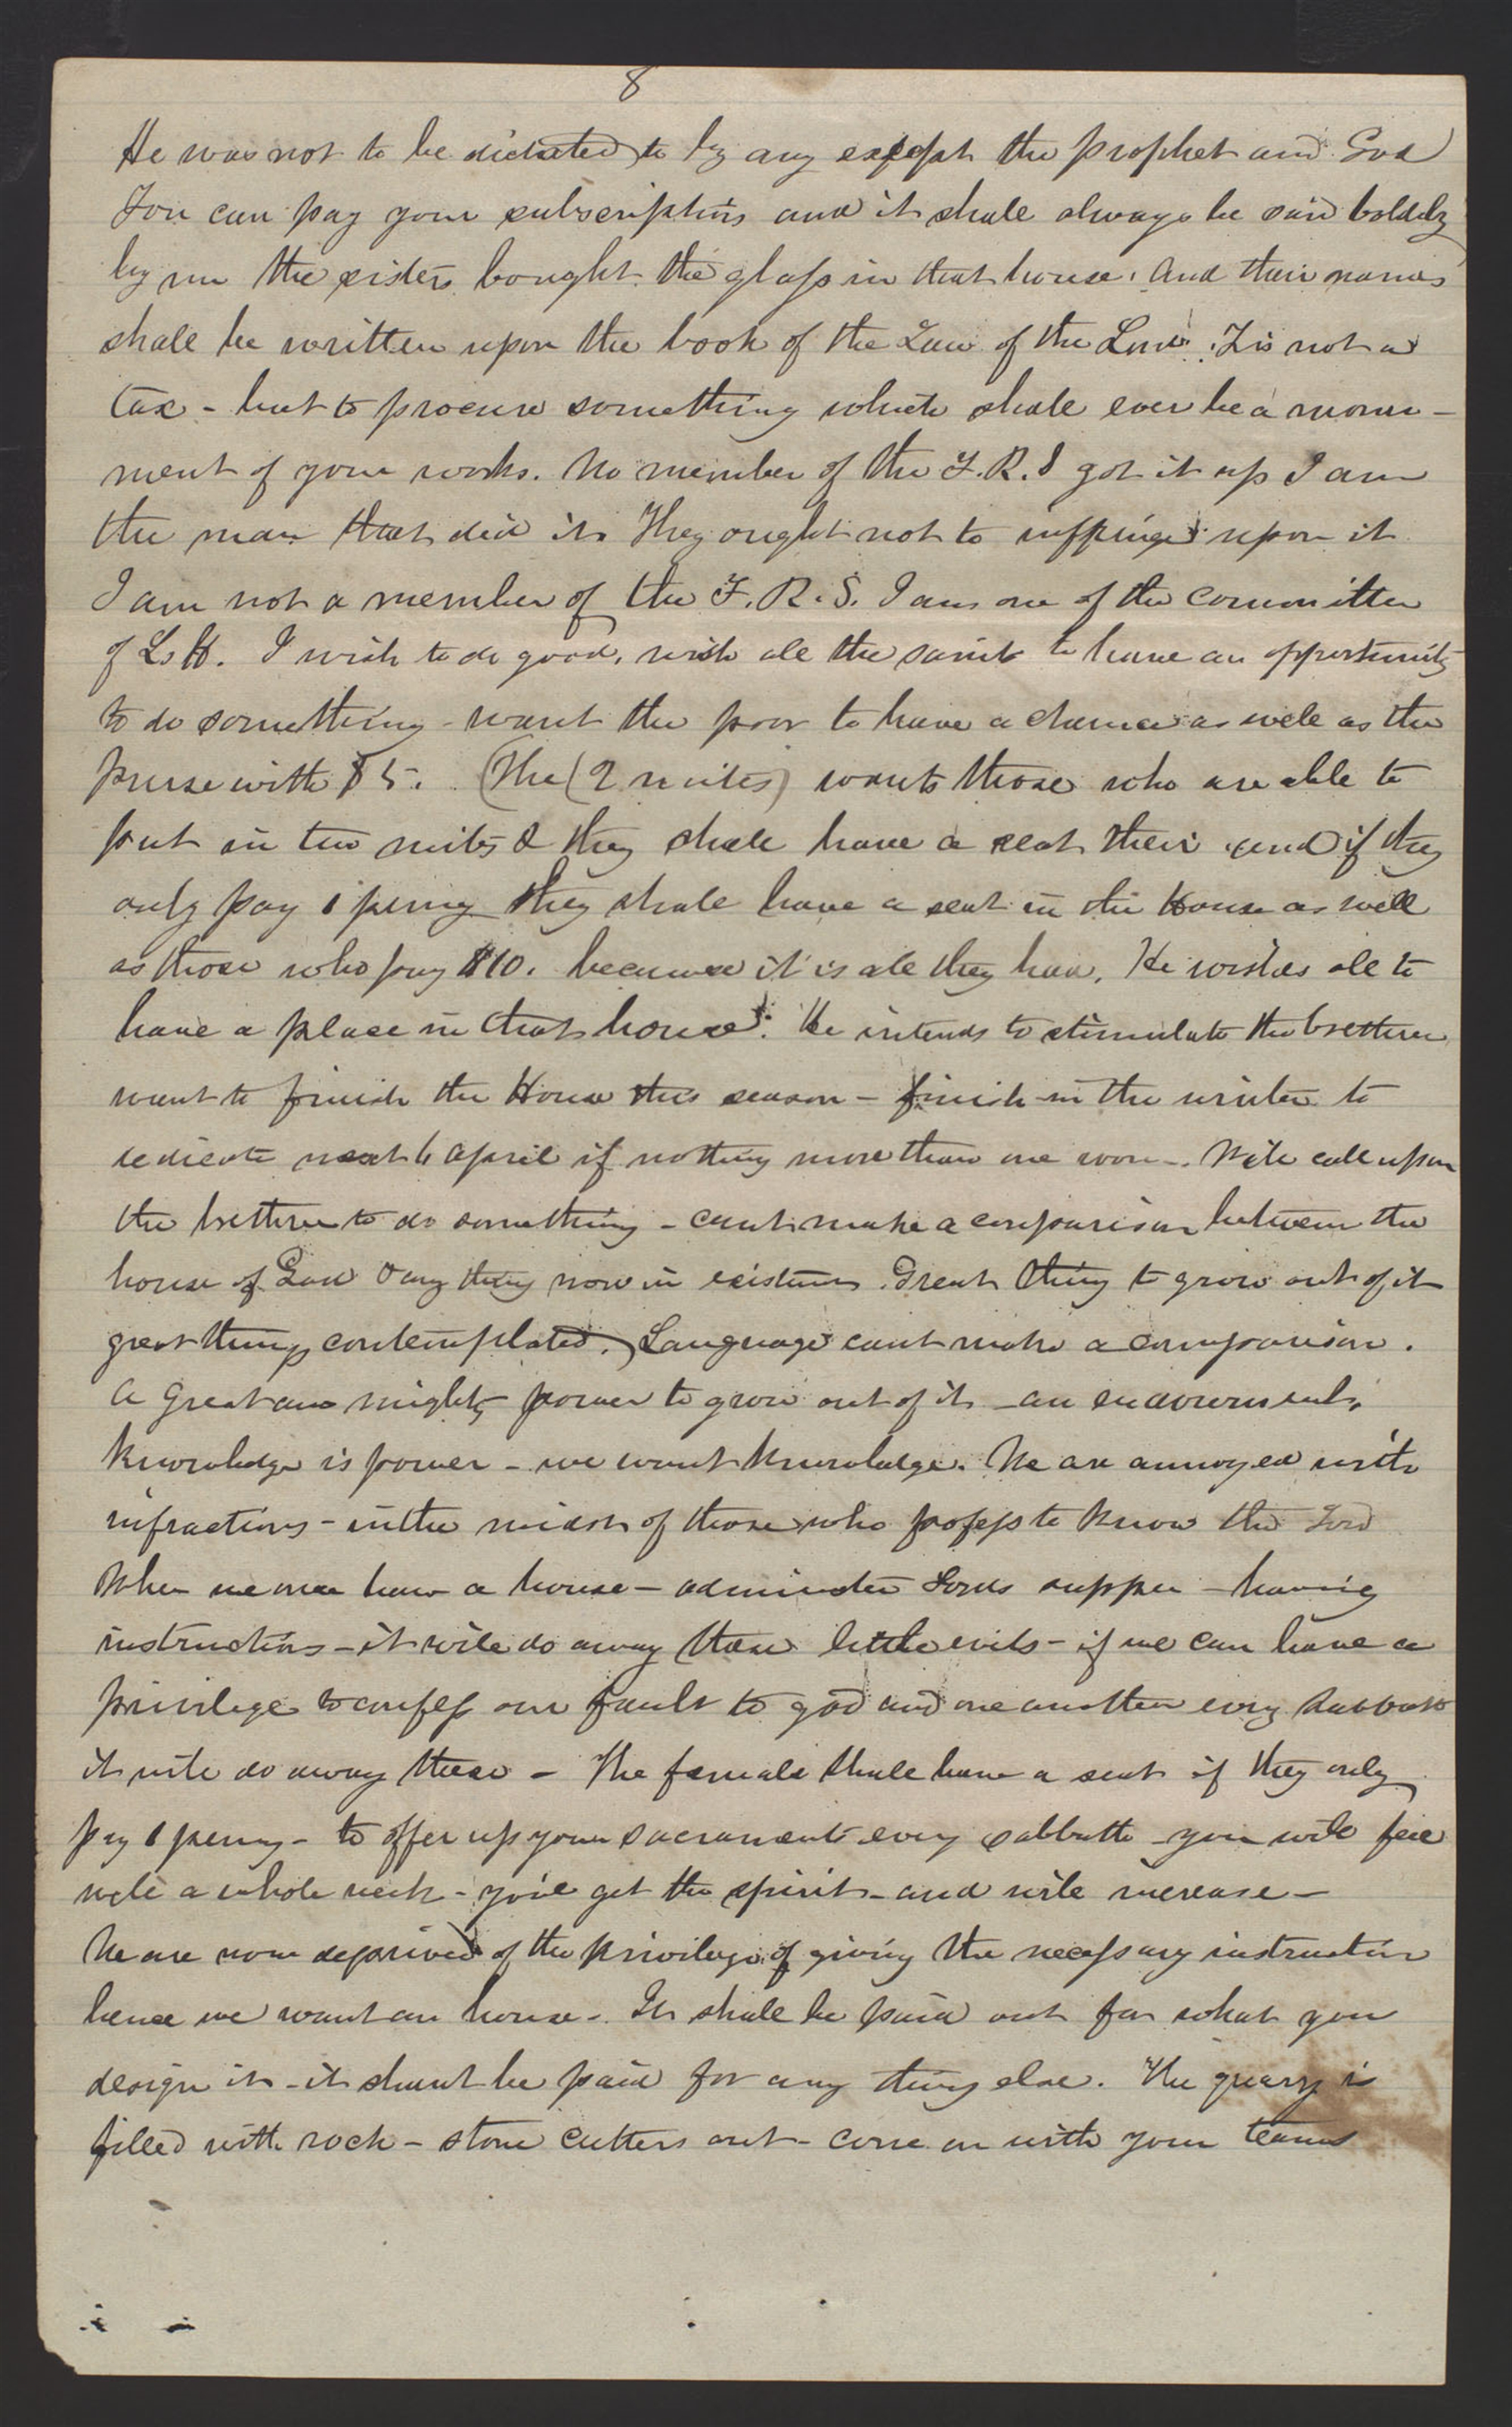 8
He was not to be dictated to by any except the prophet and God
You can pay your subscriptions and it shall always be said boldly
by me the sisters bought the glass in that house. And their names
shall be written upon the book of the Law of the Lord. Tis not a
tax - but to procure something which shall ever be a monu-
ment of your works. No member of the F.R.S got it up I am
the man that did it. They ought not to infringe upon it
I am not a member of the F. R. S. I am one of the committee
of Ls H. I wish to do good, wish all the saints to have an opportunity
to do something - want the poor to have a chance as well as the
purse with $5. (The (2 mites) wants those who are able to
put in two mites & they shall have a seat their and if they
only pay 1 penny they shall have a seat in the House as well
as those who pay $10. because it is all they have. He wishes all to
have a place in that house. He intends to stimulate the brethren
want to finish the House this season - finish in the winter to
dedicate next 6 april if nothing more than one room -. Will call upon
the brethren to do something - cant make a comparison between the
house of God & any thing now in existence. Great thing to grow out of it
great things contemplated. Language cant make a comparison.
A Great and mighty power to grow out of it - an endowment.
Knowledge is power - we want knowledge. We are annoyed with
infractions - in the midst of those who profess to know the Lord
When we once have a house - administer Lords supper - having
instructions - it will do away these little evils - if we can have a
privilege to confess our fault to god and one another every Sabbath
it will do away these - The female shall have a seat if they only
pay 1 penny - to offer up your sacraments every sabbath - you will feel
well a whole week - you'l get the spirit - and will increase -
We are now deprived of the privilege of giving the necessary instruction
hence we want an house -. It shall be paid out for what you
design it - it shant be paid for any thing else. The quarry is
filled with rock - stone cutters out - come on with your teams